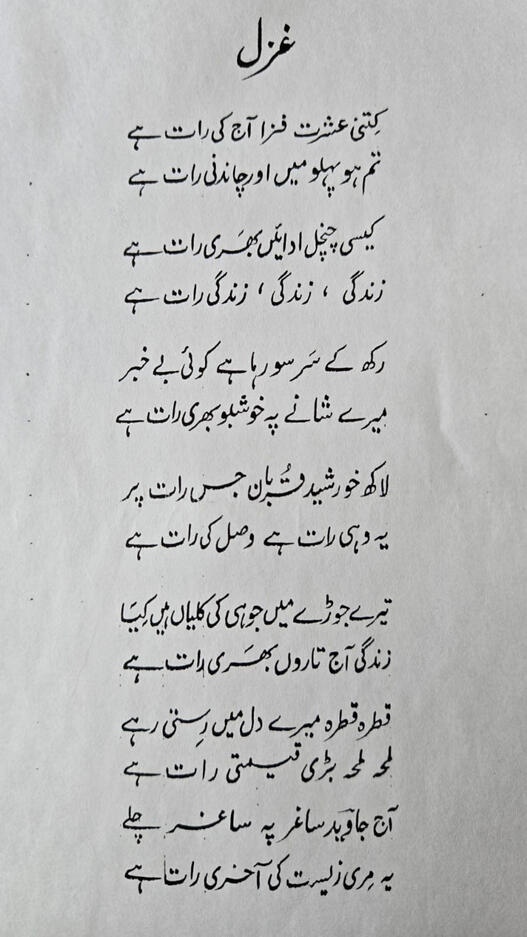 غزل
کتنی عشرت فزا آج کی رات ہے
تم ہو پہلو میں اور چاندنی رات ہے
کیسی چنچل ادائیں بھری رات ہے
زندگی ، زندگی ، زندگی رات ہے
رکھ کے سَر سو رہا ہے کوئی بے خبر
میرے شانے پہ خوشبو بھری رات ہے
لاکھ خورشید قُربان جس رات پر
یہ وہی رات ہے وصل کی رات ہے
تیرے جوڑے میں جوہی کی کلیاں ہیں کیَا
زندگی آج تاروں بھَری رات ہے
قطرہ قطرہ میرے دل میں رِستی رہے
لمحہ لمحہ بڑی قیمتی رات ہے
آج جاوید ساغر پہ ساغر چلے
یہ مِری زیست کی آخری رات ہے